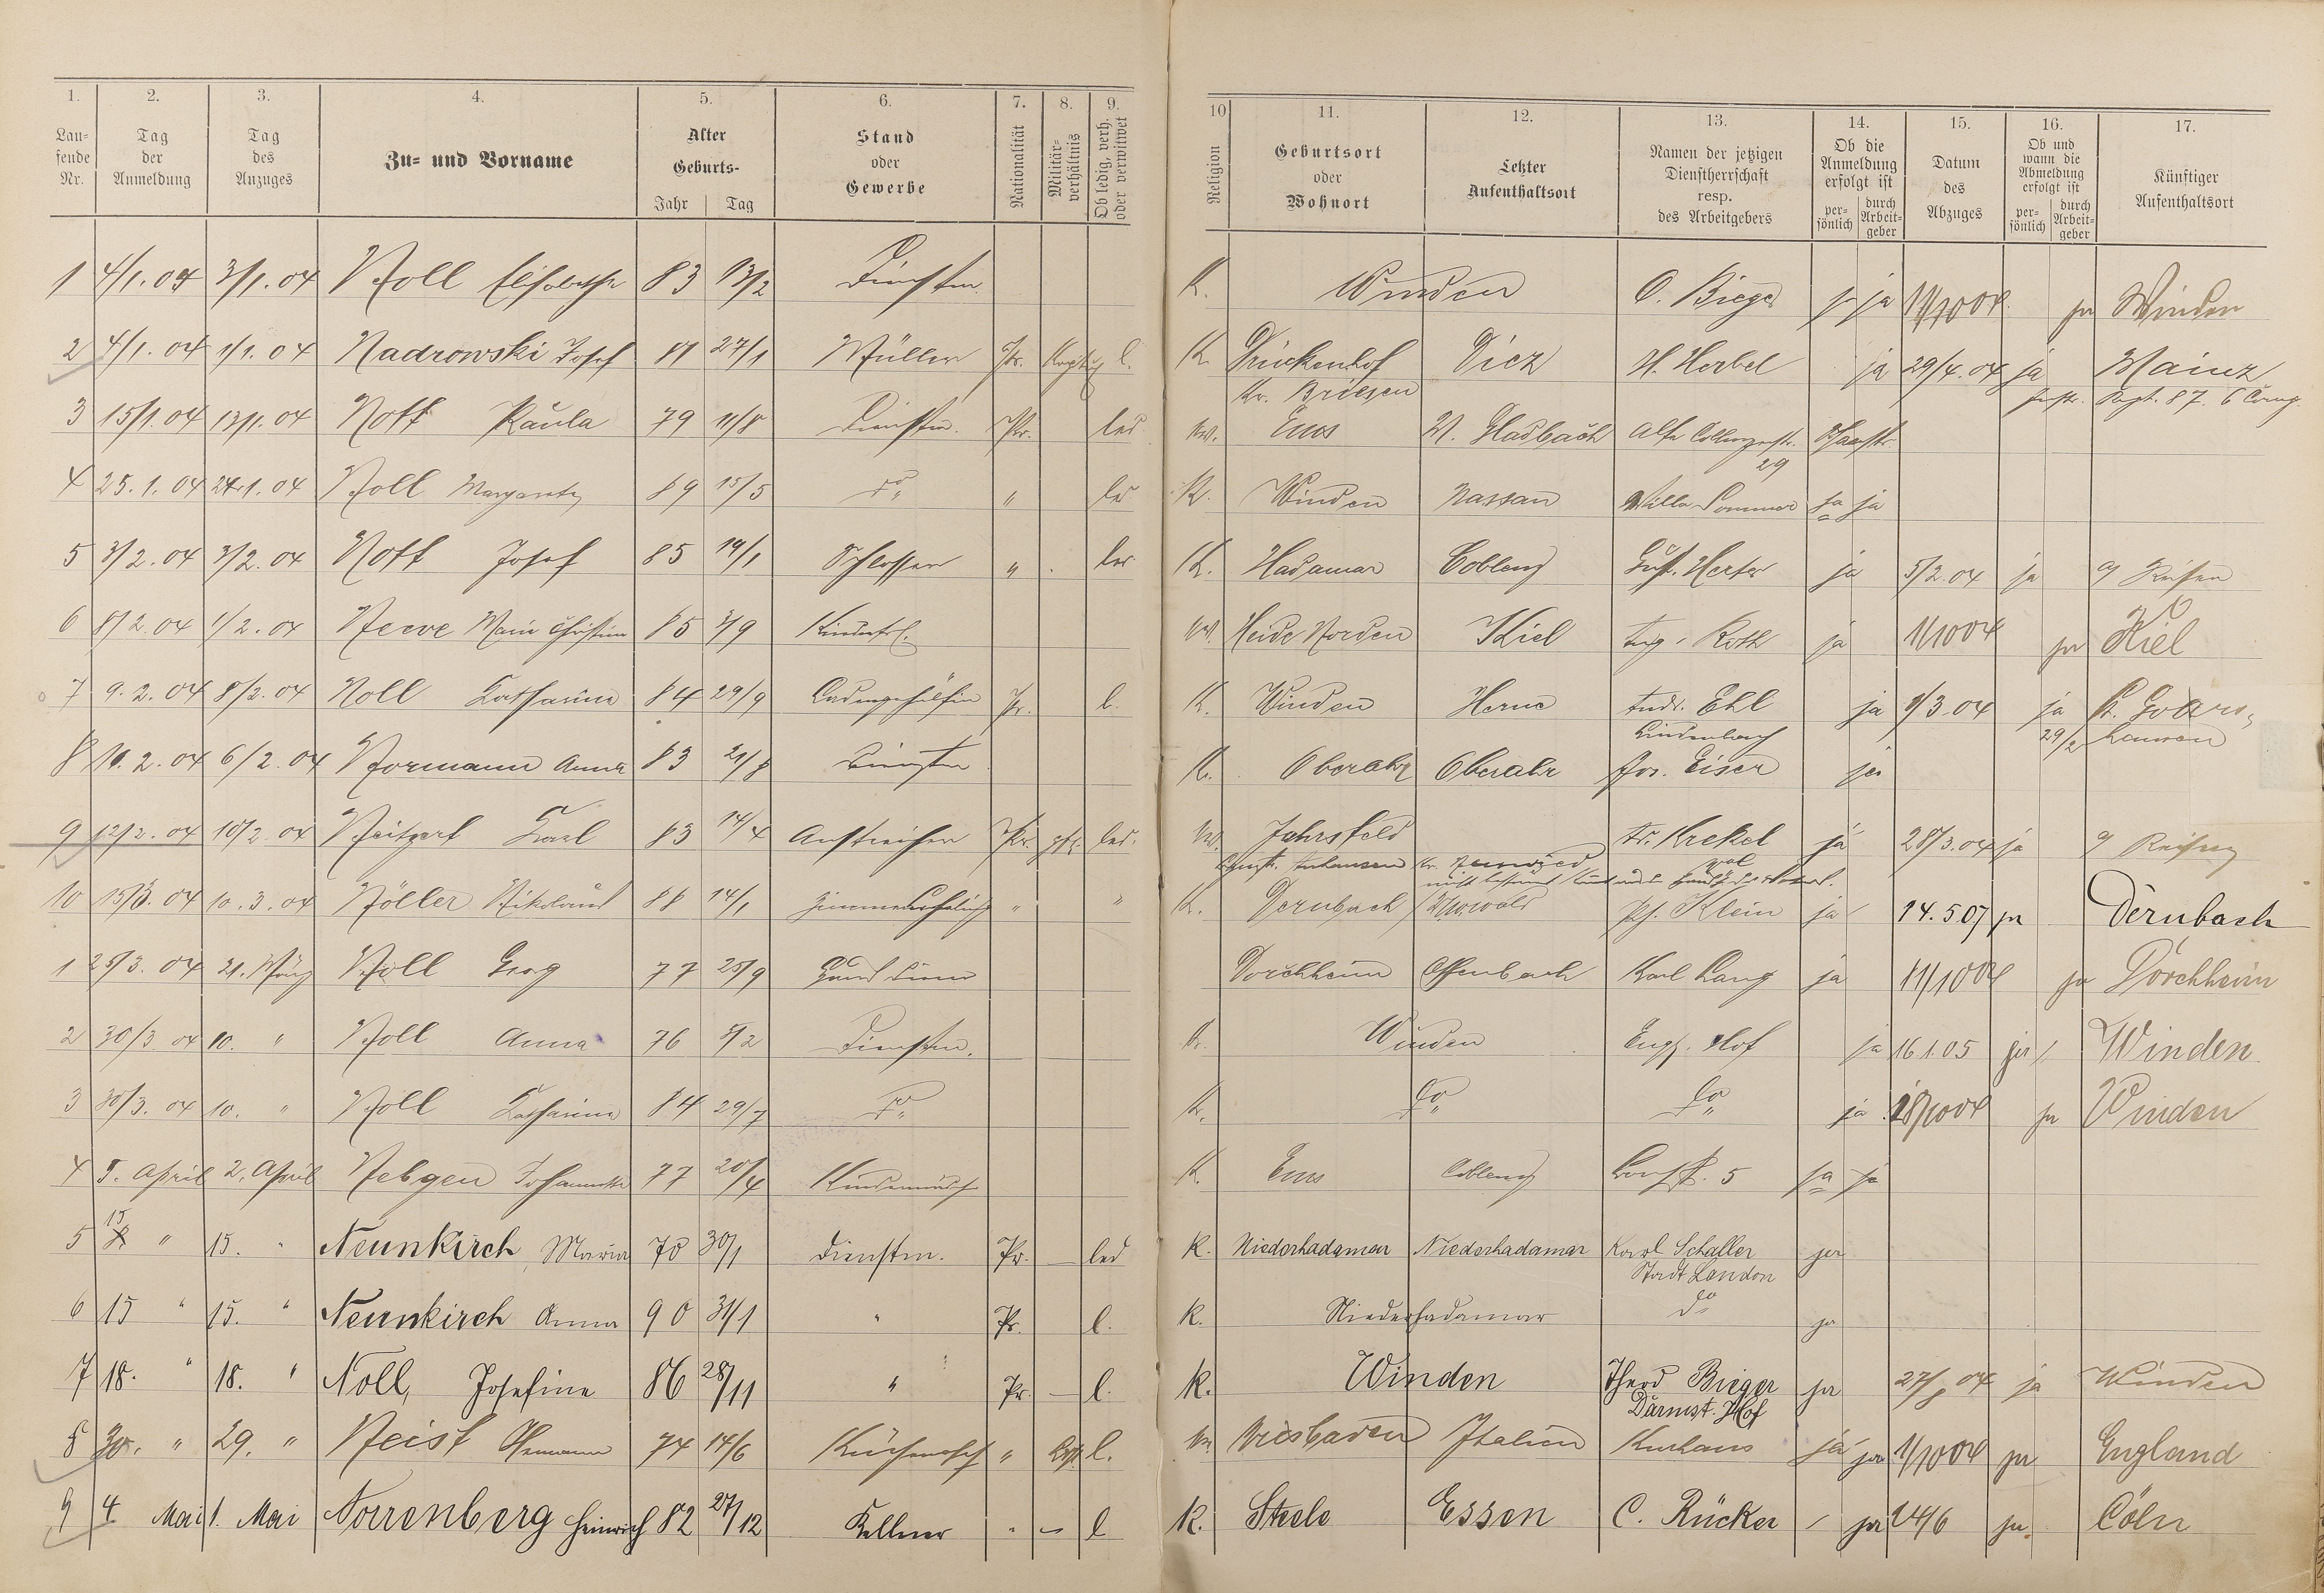 1. 2. 3. 4. 5. 6. 7. 8. 9. 10 11. 12. 13. 14. 15. 16. 17.
Lau-
fende
Nr.
Tag
der
Anmeldung
Tag
des
Anzuges
Zu- und Vorname
Alter
Geburts-
Jahr Tag
Stand
oder
Gewerbe
Nationalität
Militär-
verhältnis
Ob ledig, verh.
oder verwitwet
Religion
Geburtsort
oder
Wohnort
Letzter
Aufenthaltsort
Namen der jetzigen
Dienstherrschaft
resp.
des Arbeitgebers
Ob die
Anmeldung
erfolgt ist
per-
sönlich
durch
Arbeit-
geber
Datum
des
Abzuges
Ob und
wann die
Abmeldung
erfolgt ist
per-
sönlich
durch
Arbeit-
geber
Künftiger
Aufenthaltsort
1 4/1. 04 3/1. 04 Noll Elisabetha 83 13/2 Dienstm. K. Winden O. Bieger ja 11/10 04 ja Winden
2 4/1. 04 1/1. 04 Nadrowski Josef 81 27/1 Müller Pr. l. K. Drückenhof Diez H. Herbel ja 29/4. 04 ja Mainz
Kr. Briesen Regt. 87. 6 Comp.
3 15/1. 04 13/1. 04 Noll Paula 79 11/8 Dienstm. Pr. led Ems M. Gladbach Alte
29
4 25. 1. 04 24. 1. 04 Noll Margareta 89 15/5 do " led K. Winden Nassau Villa Sommer ja ja
5 3/2. 04 3/2. 04 Noll Josef 85 19/1 Schlosser " led K. Hadamar Coblenz Gust. Herter ja 5/2. 04 ja a/ Reisen
6 8/2. 04 1/2. 04 Neeve Marie Christine 85 3/9 Kinderfrl. Heide Norden Kiel Roth ja 1/10 04 ja Kiel
7 9. 2. 04 8/2. 04 Noll Katharina 84 29/9 Ladengehülfin Pr. l. K. Winden Herne Andr. Ehl ja 1/3 04 ja St. Goars-
Lindenbach 29/2 hausen
8 10. 2. 04 6/2. 04 Normann Anna 83 21/8 Dienstm K. Oberahr Oberahr Jos. Eiser ja
9 12/2. 04 10/2 04 Neitzert Karl 83 14/4 Anstreicher Pr. led. Jahrsfeld Fr. Krekel ja 28/3. 04 ja a/ Reisen
Kr. Neuwied
10 15/3. 04 10. 3. 04 Nöller Nikolaus 88 14/1 " " K. Dernbach Westerwald Ph. Klein ja 14. 5. 07 ja Dernbach
1 25/3. 04 21. März Noll Georg 77 25/9 Hausdiener Dorchheim Offenbach Karl Lang ja 11/10 04 ja Dorchheim
2 30/3 04 10. " Noll Anna 76 5/2 Dienstm. K. Winden Engl. Hof ja 16 1. 05 ja Winden
3 30/3. 04 10. " Noll Katharina 84 29/7 do K. do do ja 18/10 04 ja Winden
4 5. April 2. April Nebgen Johannetta 77 20/4 K. Ems Coblenz 5 ja ja
5 15 " 15. " Neunkirch, Maria 70 30/1 Dienstm. Pr. — led K. Niederhadamar Niederhadamar Karl Schaller ja
Stadt London
6 15 " 15. " Neunkirch Anna 90 31/1 " Pr. l. K. Niederhadamar do ja
7 18. " 18. " Noll, Josefine 86 28/11 " Pr. — l. K. Winden Theod Bieger ja 04 ja Winden
Darmst. Hof
8 30. " 29. " Neist Hermann 74 14/6 Küchenchef " l. Wiesbaden Italien Kurhaus ja ja 1/10 04 ja England
9 4 Mai 1. Mai Norrenberg Heinrich 82 27/12 Kellner " — l K. Steele Essen C. Rücker / ja 24/6 ja. Cöln